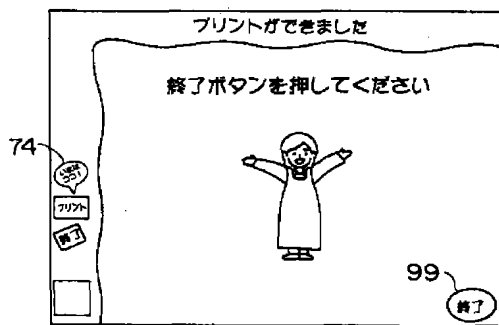 プリントができました
終了ボタンを押してください
74
いまは
ココ!
プリント
終了
99
終了